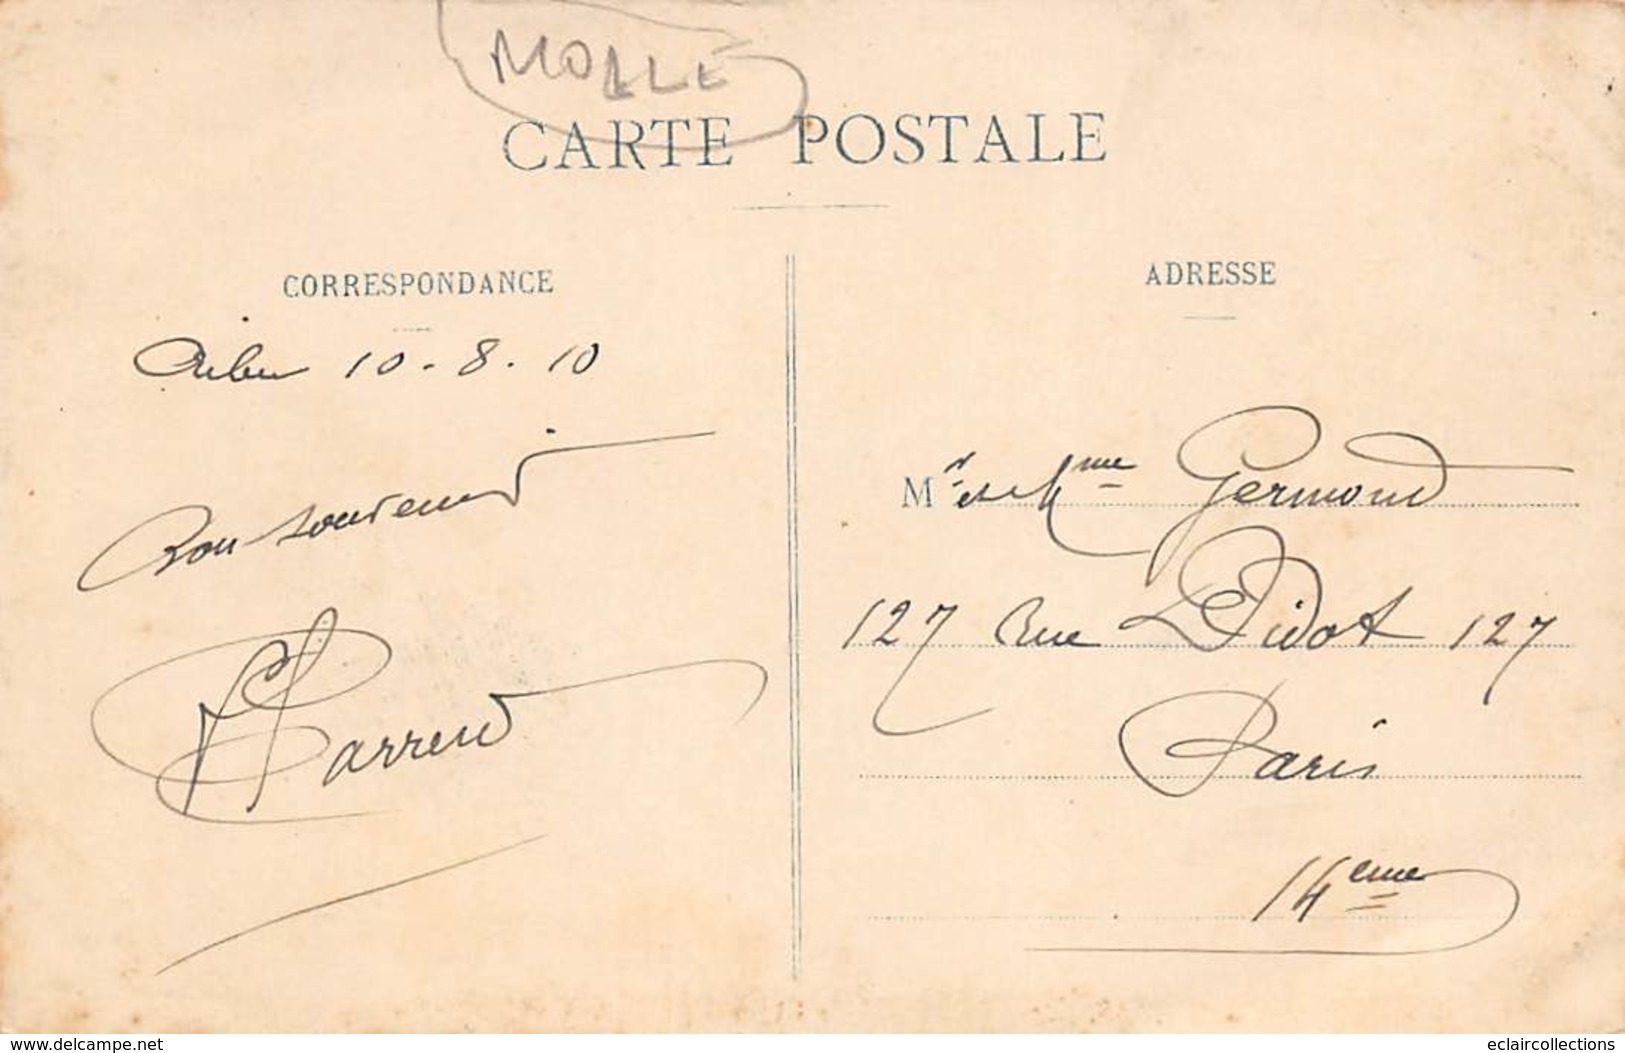 CARTE POSTALE
CORRESPONDANCE
10-8.10
Bon souvenir
ADRESSE
Mr et Mme Germond
127 Rue Didot 127
Paris
14eme
www.delcampe.net
eclaircollections